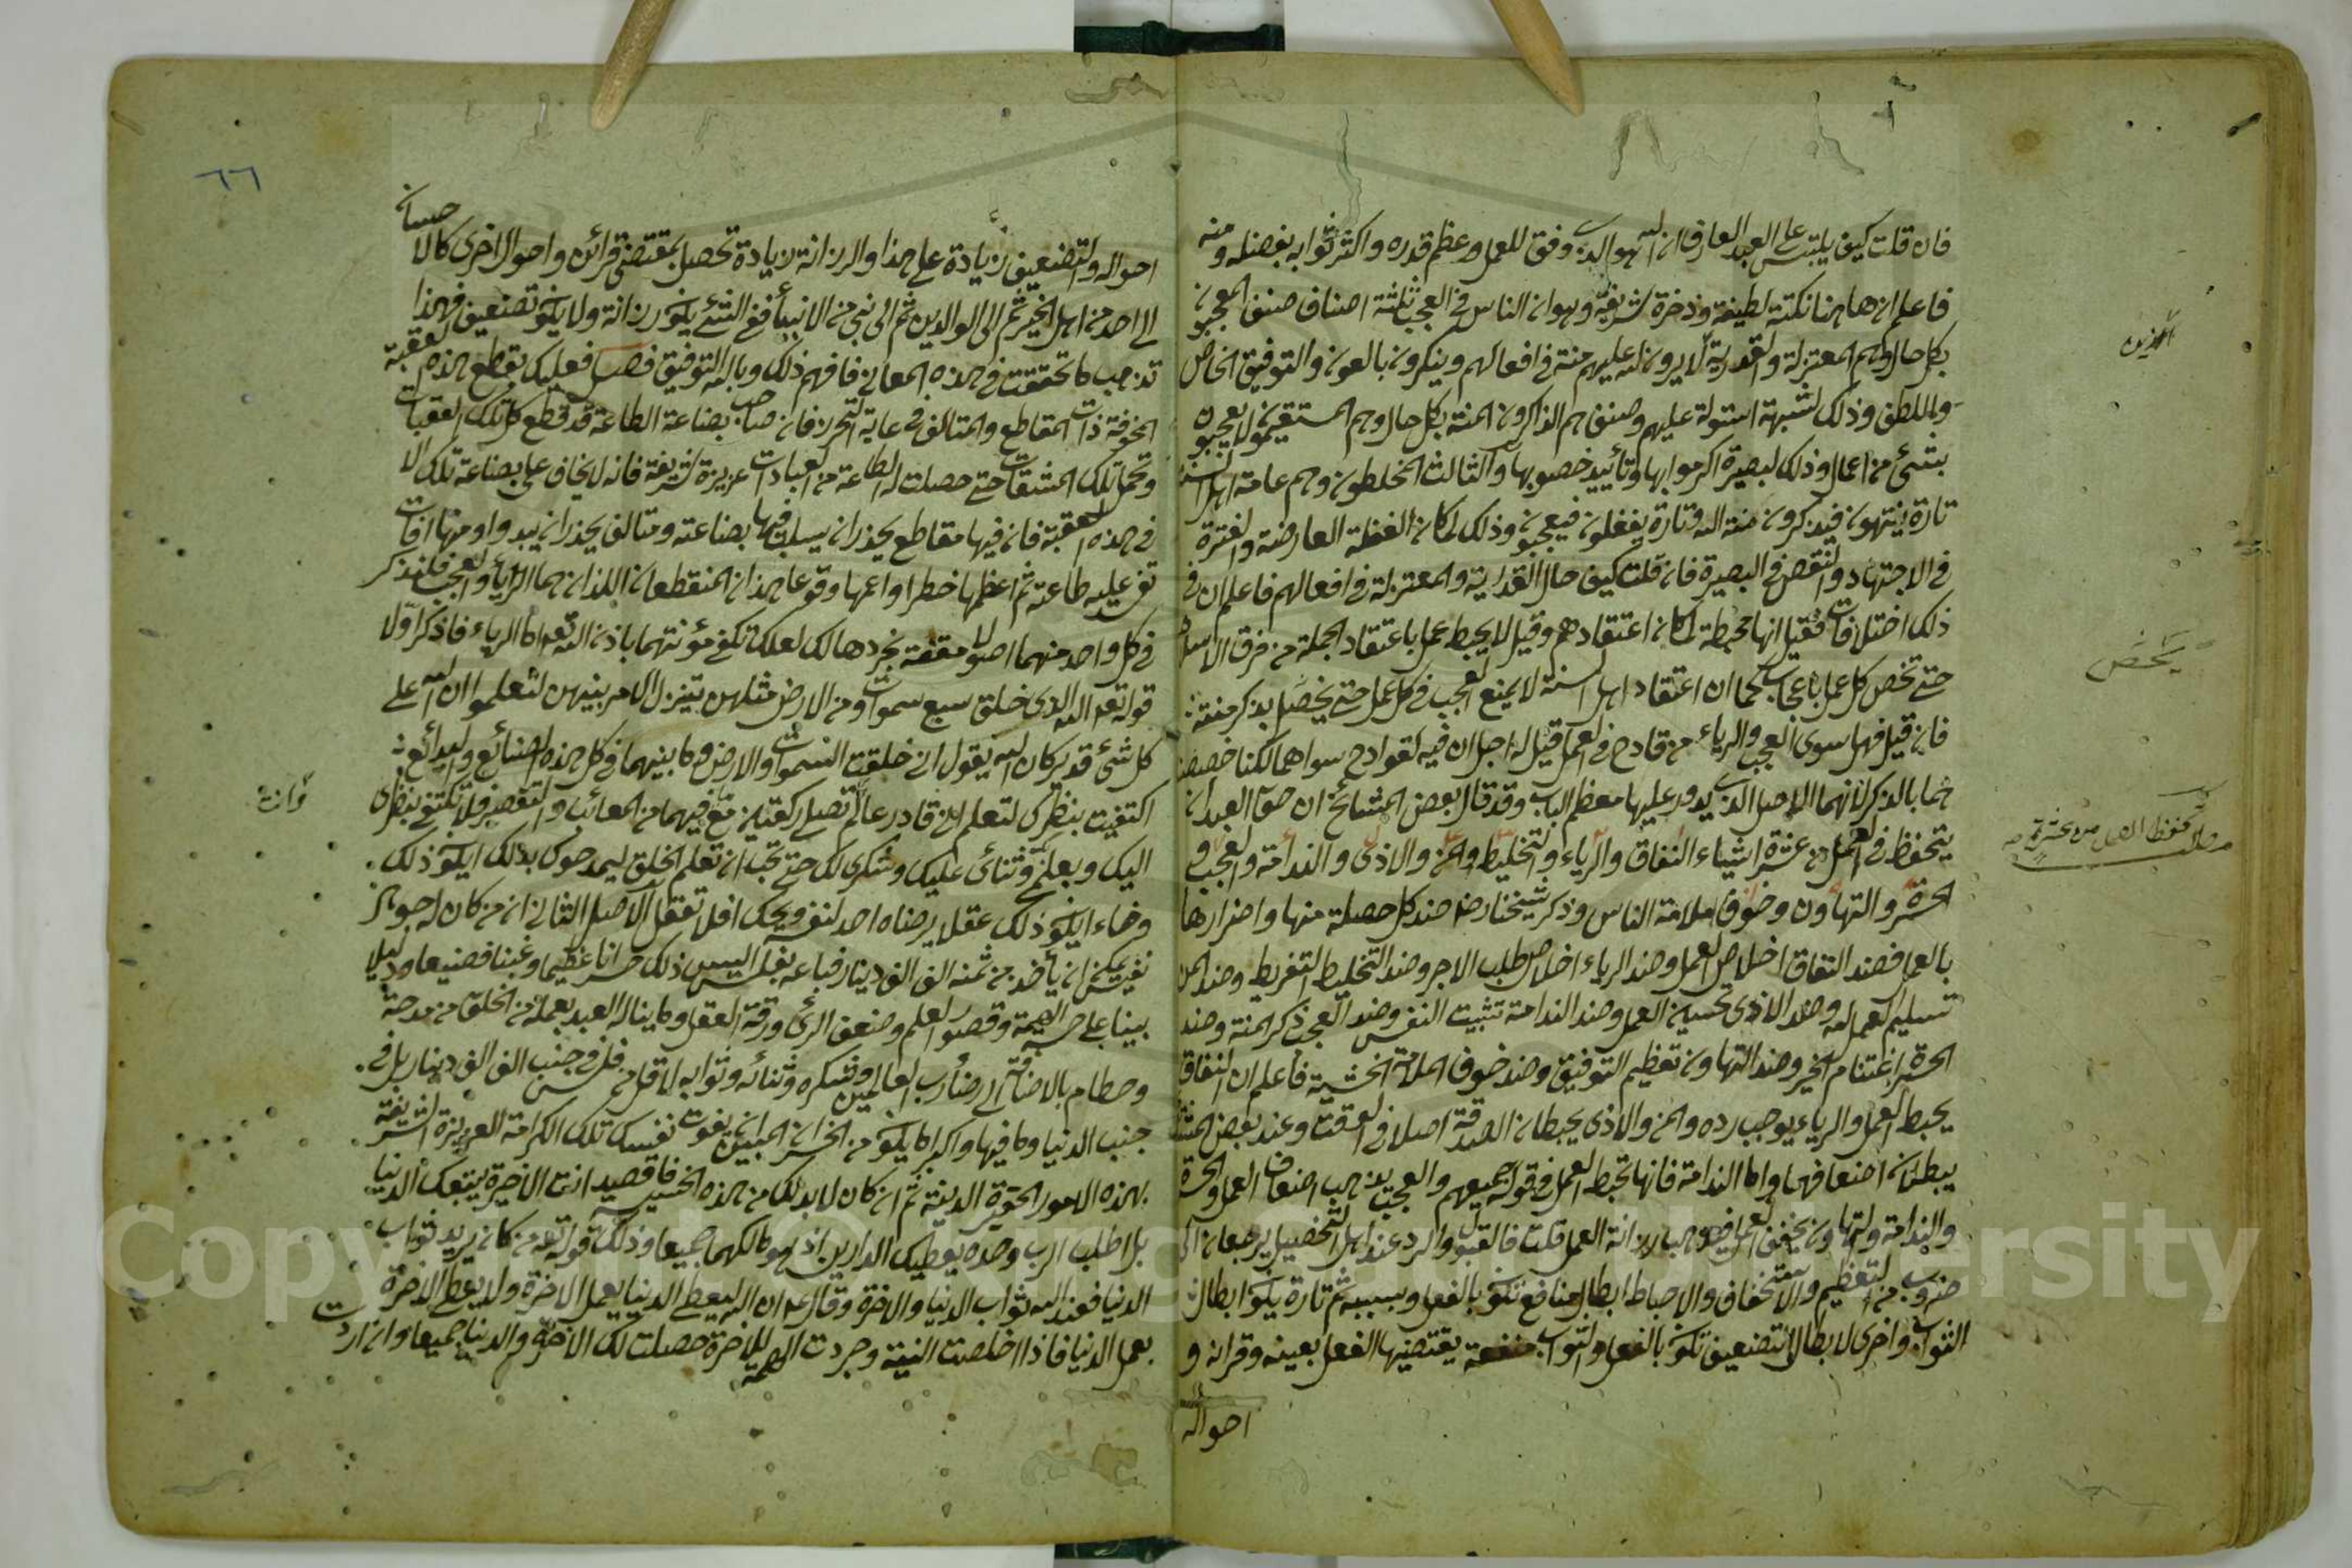 فان قلت كيف يلتبس على العبد العارف ان الله هو الذى وفق للعمل وعظم قدره واكثر ثوابه بفضله ومنه
فاعلم ان هاهنا نكتة لطيفة وذخرة شريفة وهو ان الناس فى العجب ثلثة اصناف صنف المعجبون
بكل حال وهم المعتزلة والقدرية لا يرون لله عليهم منة فى افعالهم وينكرون بالعون والتوفيق الخاص
واللطف وذلك لشبهة استولت عليهم وصنف هم الذاكرون المنة بكل حال وهم المستقيمون لا يعجبون
بشئ من اعمال وذلك لبصيرة اكرموا بها وتأييد خصوا بها والثالث المخلطون وهم عامة اهل السنة
تارة ينتبهون فيذكرون منة الله وتارة يغفلون فيعجبون وذلك لمكان الغفلة العارضة والفترة
فى الاجتهاد والنقص فى البصيرة فان قلت كيف حال القدرية والمعتزلة فى افعالهم فاعلم ان فى
ذلك اختلافات فقيل انها محبطة لمكان اعتقادهم وقيل لا يحبط عمل باعتقاد الجملة من فرق الاسلام
حتى تخص كل عمل باعجاب كما ان اعتقاد اهل السنة لا يمنع العجب فى كل عمل حتى يخص بذكر منته
فان قيل فهل سوى العجب والرياء من قادح فى العمل قيل له اجل ان فيه لقوادح سواهما لكنا خصصنا
هما بالذكر لانهما الاصل الذى يدور عليها معظم الباب وقد قال بعض المشائخ ان حق العبد ان
يتحفظ فى العمل من عشرة اشياء النفاق والرياء والتخليط والمن والاذى والندامة والعجب و
الحسرة والتهاون وخوف ملامة الناس وذكر شيخنا رضه ضد كل خصلة منها واضرارها
بالعمل فضد النفاق اخلاص العمل وضد الرياء اخلاص طلب الاجر وضد التخليط التفريط وضد المن
تسليم العمل لله وضد الاذى تحسين العمل وضد الندامة تثبيت النفس وضد العجب ذكر المنة وضد
الحسرة اغتنام الخير وضد التهاون تعظيم التوفيق وضد خوف الملامة الخشية فاعلم ان النفاق
يحبط العمل والرياء يوجب رده والمن والاذى يحبطان الصدقة اصلا فى الوقت وعند بعض المشا
يبطلان اضعافهما واما الندامة فانها تحبط العمل فى قولهم جميعهم والعجب يذهب اضعاف العمل والحسرة
والندامة والتهاون يخفف العمل فيذهب رزانة العمل قلت فالقبول والرد عند اهل التحصيل يرجعان الى
ضروب من التعظيم والاستخفاف والاحباط ابطال منافع تكون بالفعل وبسببه ثم تارة يكون ابطال
الثواب واخرى لابطال التضعيف تكون بالفعل والثواب منفعة يقتضيها الفعل بعينه وقرانه و
احواله
الذين
يخص
مطلب تحفظ العمل من عشرة
٦٦
احواله والتضعيف زيادة على هذا والرزانة زيادة تحصل بمقتضى قرائن واحوال اخرى كالاحسان
الى احد من اهل الخير ثم الى الوالدين ثم الى نبى من الانبياء ففى الشئ يكون رزانة ولا يكون تضعيف فهذا
تذهب ما تحققت فى هذه المعانى فافهم ذلك وبالله التوفيق فصل فعليك بقطع هذه العقبة
المخوفة ذات المقاطع والمتالف غاية التحرز فان صاحب بضاعة الطاعة قد قطع كل تلك العقبات
وتحمل تلك المشقات حتى حصلت له الطاعة من العبادات عزيزة شريفة فانه لا يخاف على بضاعة تلك الا
فى هذه العقبة فان فيها مقاطع يحذر ان يسلب فيها بضاعته ومتالف يحذر ان يبدوا منها افات
تفـ عليه طاعته ثم اعظمها خطرا واعمها وقوعا هذان المنقطعان اللذان هما الرياء والعجب فلنذكر
فى كل واحد منهما اصولا مقنعة نجردها لك لعلك تكفى مؤنتهما باذن الله تعه اما الرياء فاذكر اولا
قوله تعه الله الذى خلق سبع سموات ومن الارض مثلهن يتنزل الامر بينهن لتعلموا ان الله على
كل شئ قدير كان الله يقول انى خلقت السموات والارض وما بينهما فى كل هذه الصنائع والبدائع
اكتفيت بنظرك لتعلم انى قادر عالم تصلى ركعتين مع ما فيهما من المعائب والتقصير فلا تكتفى بنظرى
وانت
اليك وبعلمى وثنائى عليك وشكرى لك حتى تحب ان تعلم الخلق ليمدحوك بذلك ايكون ذلك
وفاء ايكون ذلك عقلا يرضاه احد لنفسه ويحك افلا تعقل الاصل الثانى ان من كان له جوهر
نفيس يمكن ان يأخذ من ثمنه الف الف دينار فباعه بفلس اليس ذلك خسرانا عظيما وغبنا فضيعا ودليلا
بينا على خسة الهمة وقصور العلم وضعف الرأى ورقة العقل وما يناله العبد بعمله من الخلق من مدحة
وحطام بالاضافة الى رضا رب العالمين وشكره وثنائه وثوابه لاقل من فلس فى جنب الف الف دينار بل فى
جنب الدنيا وما فيها واكبر اما يكون من الخسران المبين ان يفوت نفسك تلك الكرامة العزيزة الشريفة
بهذه الامور الحقيرة الدنية ثم ان كان لا بد لك من هذه الخسيسة فاقصد انت الاخرة يتبعك الدنيا
بل اطلب الرب وحده يعطيك الدارين اذ هو مالكهما جميعا وذلك قوله تعه من كان يريد ثواب
الدنيا فعند الله ثواب الدنيا والاخرة وقال عم ان الله ليعطى الدنيا بعمل الاخرة ولا يعطى الاخرة
بعمل الدنيا فاذا اخلصت النية وجردت الهمة للاخرة حصلت لك الاخرة والدنيا جميعا وان اردت
Copyright © King Saud University